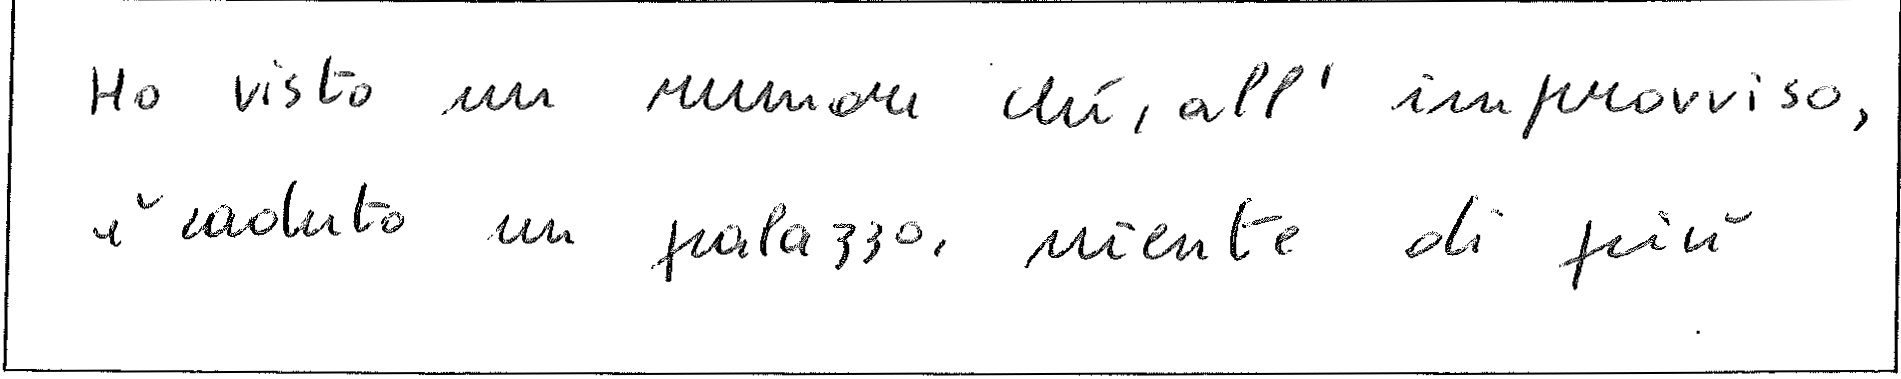 Ho visto un rumore chí, all' improvviso,
è caduto un palazzo, niente di più